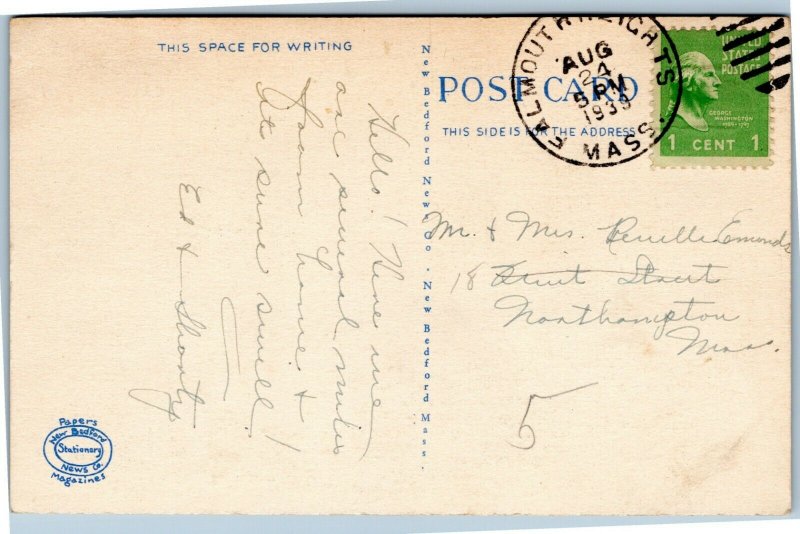 THIS SPACE FOR WRITING
Hello! Here we
are several miles
from home &
its sure swell!
Ed & Shorty
Papers
New Bedford
Stationery
News Co.
Magazines
New Bedford News Co. · New Bedford Mass.
POST CARD
THIS SIDE IS FOR THE ADDRESS
FALMOUTH HEIGHTS
AUG
24
5 PM
MASS.
UNITED
STATES
POSTAGE
GEORGE
WASHINGTON
1789-1797
1 CENT 1
Mr. & Mrs. Emonds
18 Street
Northampton
Mass.
5